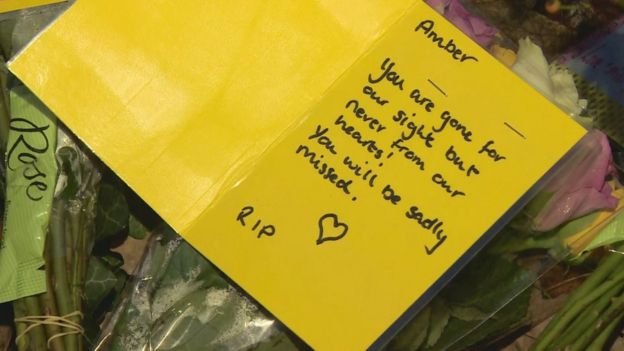 Amber
You are gone for
our sight but
never from our
heares!
You will be sadly
missed.
RIP
Rose